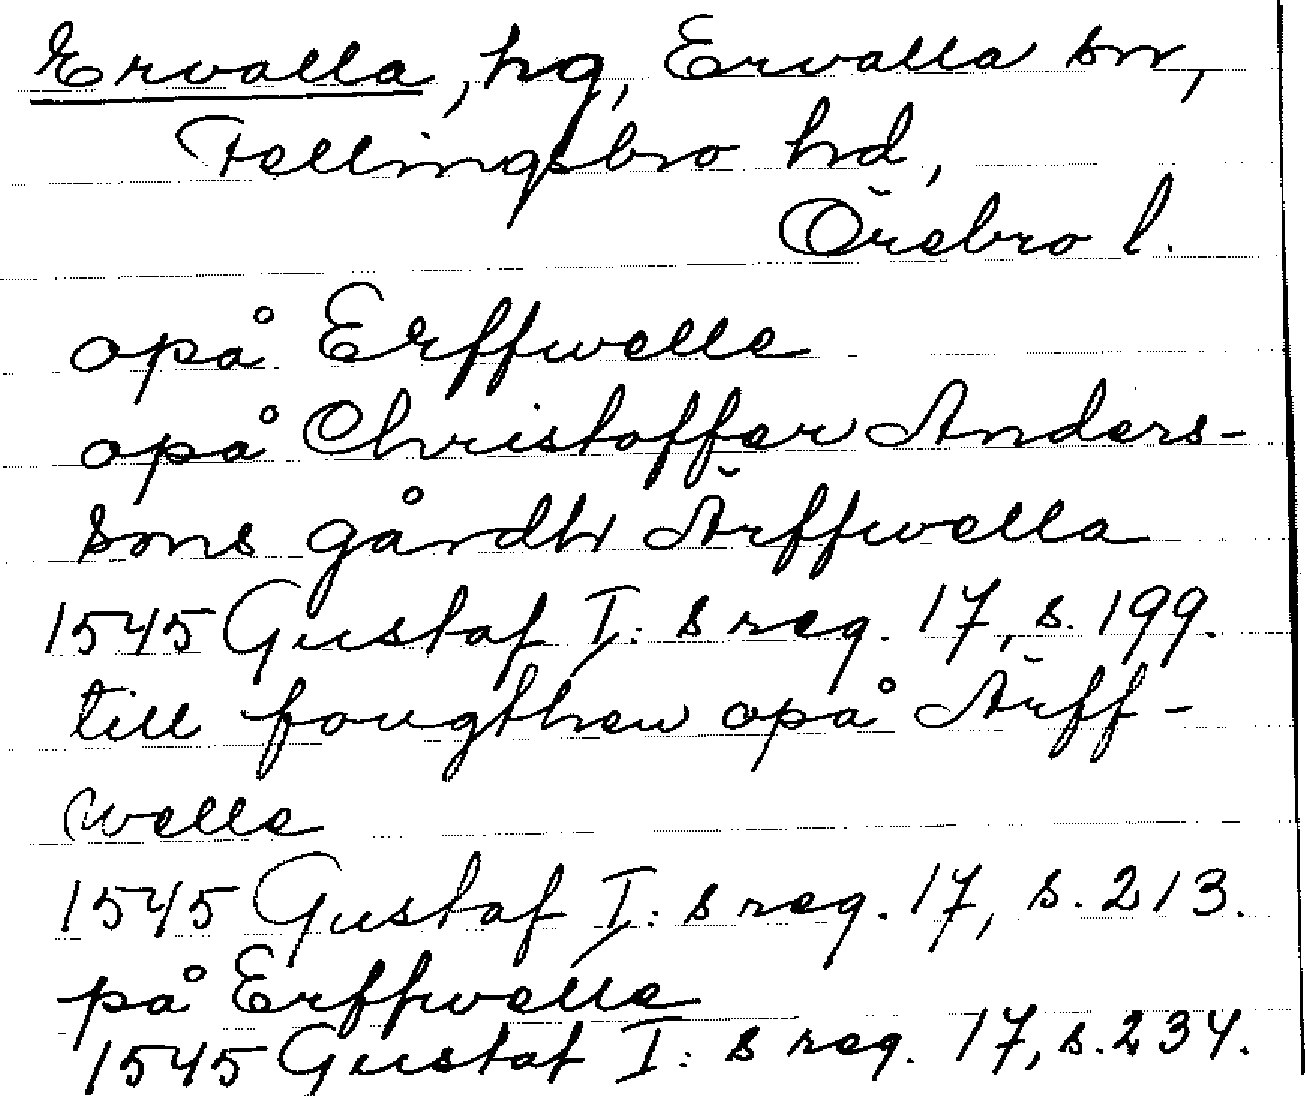 Ervalla, hg, Ervalla sn,
Fellingsbro hd,
Örebro l.
opå Erffwelle
opå Christoffer Anders-
sons gårdh Ärffwella
1545 Gustaf I:s reg. 17, s. 199.
till fougthen opå Ärff-
welle
1545 Gustaf I:s reg. 17, s. 213.
på Erffwelle
1545 Gustaf I:s reg. 17, s. 234.